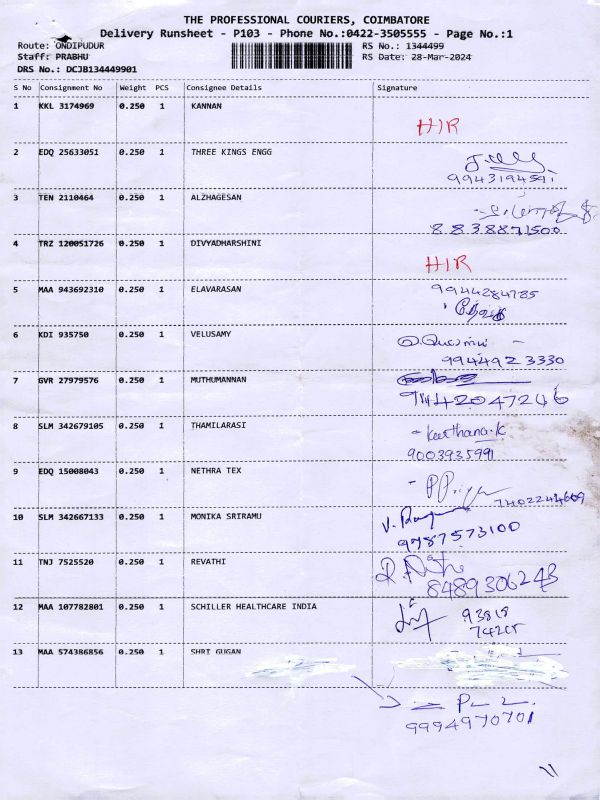 THE PROFESSIONAL COURIERS, COIMBATORE
Delivery Runsheet - P103 - Phone No.:0422-3505555 - Page No.:1
Route: ONDIPUDUR
RS No.: 1344499
Staff: PRABHU
RS Date: 28-Mar-2024
DRS No.: DCJB134449901
S No Consignment No Weight PCS Consignee Details Signature
1 KKL 3174969 0.250 1 KANNAN
HIR
2 EDQ 25633051 0.250 1 THREE KINGS ENGG
9943194591
3 TEN 2110464 0.250 1 ALZHAGESAN
8838871500
4 TRZ 120051726 0.250 1 DIVYADHARSHINI
HIR
5 MAA 943692310 0.250 1 ELAVARASAN
9944284785
6 KDI 935750 0.250 1 VELUSAMY
9944923330
7 GVR 27979576 0.250 1 MUTHUMANNAN
9442047246
8 SLM 342679105 0.250 1 THAMILARASI
- Keerthana.K
9003935991
9 EDQ 15008043 0.250 1 NETHRA TEX
7402244609
10 SLM 342667133 0.250 1 MONIKA SRIRAMU
9787573100
11 TNJ 7525520 0.250 1 REVATHI
8489306243
12 MAA 107782801 0.250 1 SCHILLER HEALTHCARE INDIA
93818
74205
13 MAA 574386856 0.250 1 SHRI GUGAN
9994970701